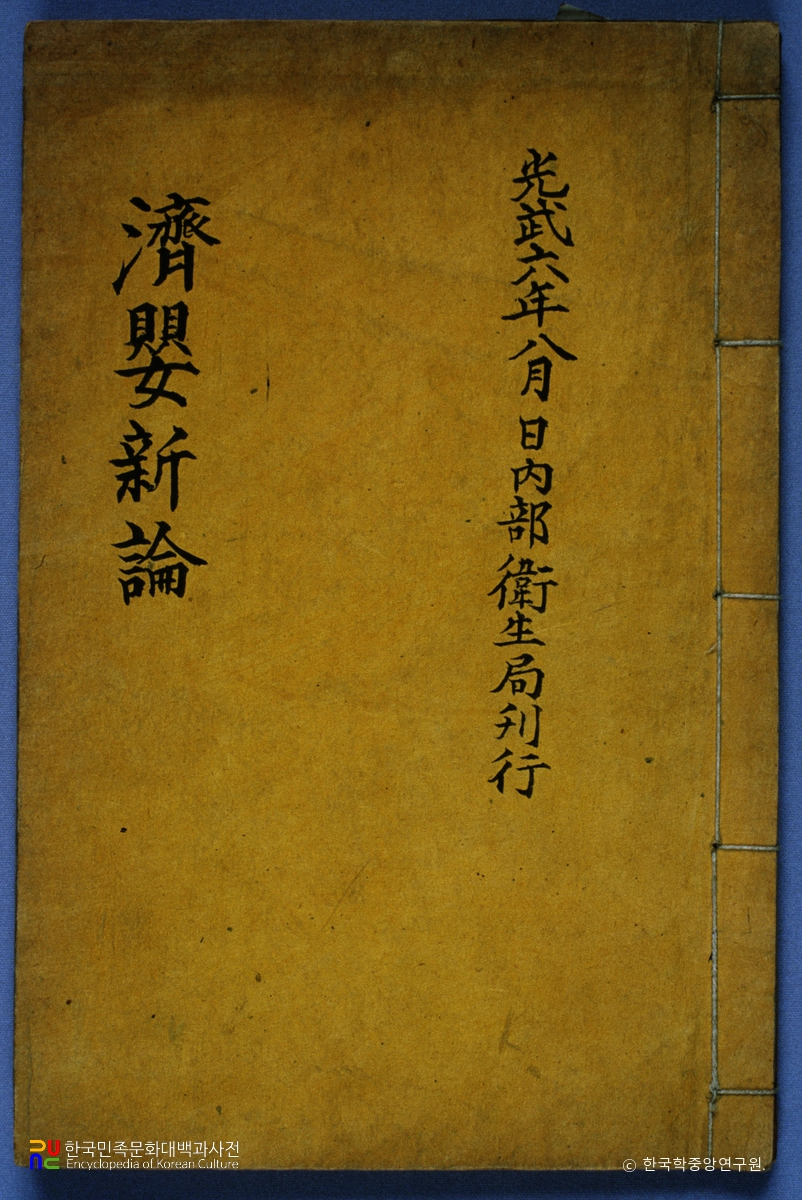 光武六年八月 日內部衛生局刊行
濟嬰新論
한국민족문화대백과사전
Encyclopedia of Korean Culture
© 한국학중앙연구원.